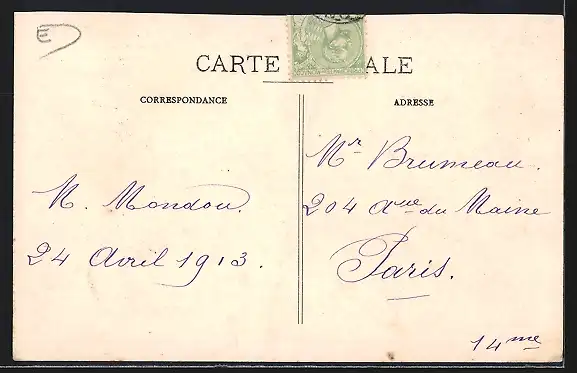 E
CARTE ALE
CORRESPONDANCE
ADRESSE
Mr Brumeau.
204 Aue du Maine
Paris.
14me
N. Mondou.
24 Avril 1913.